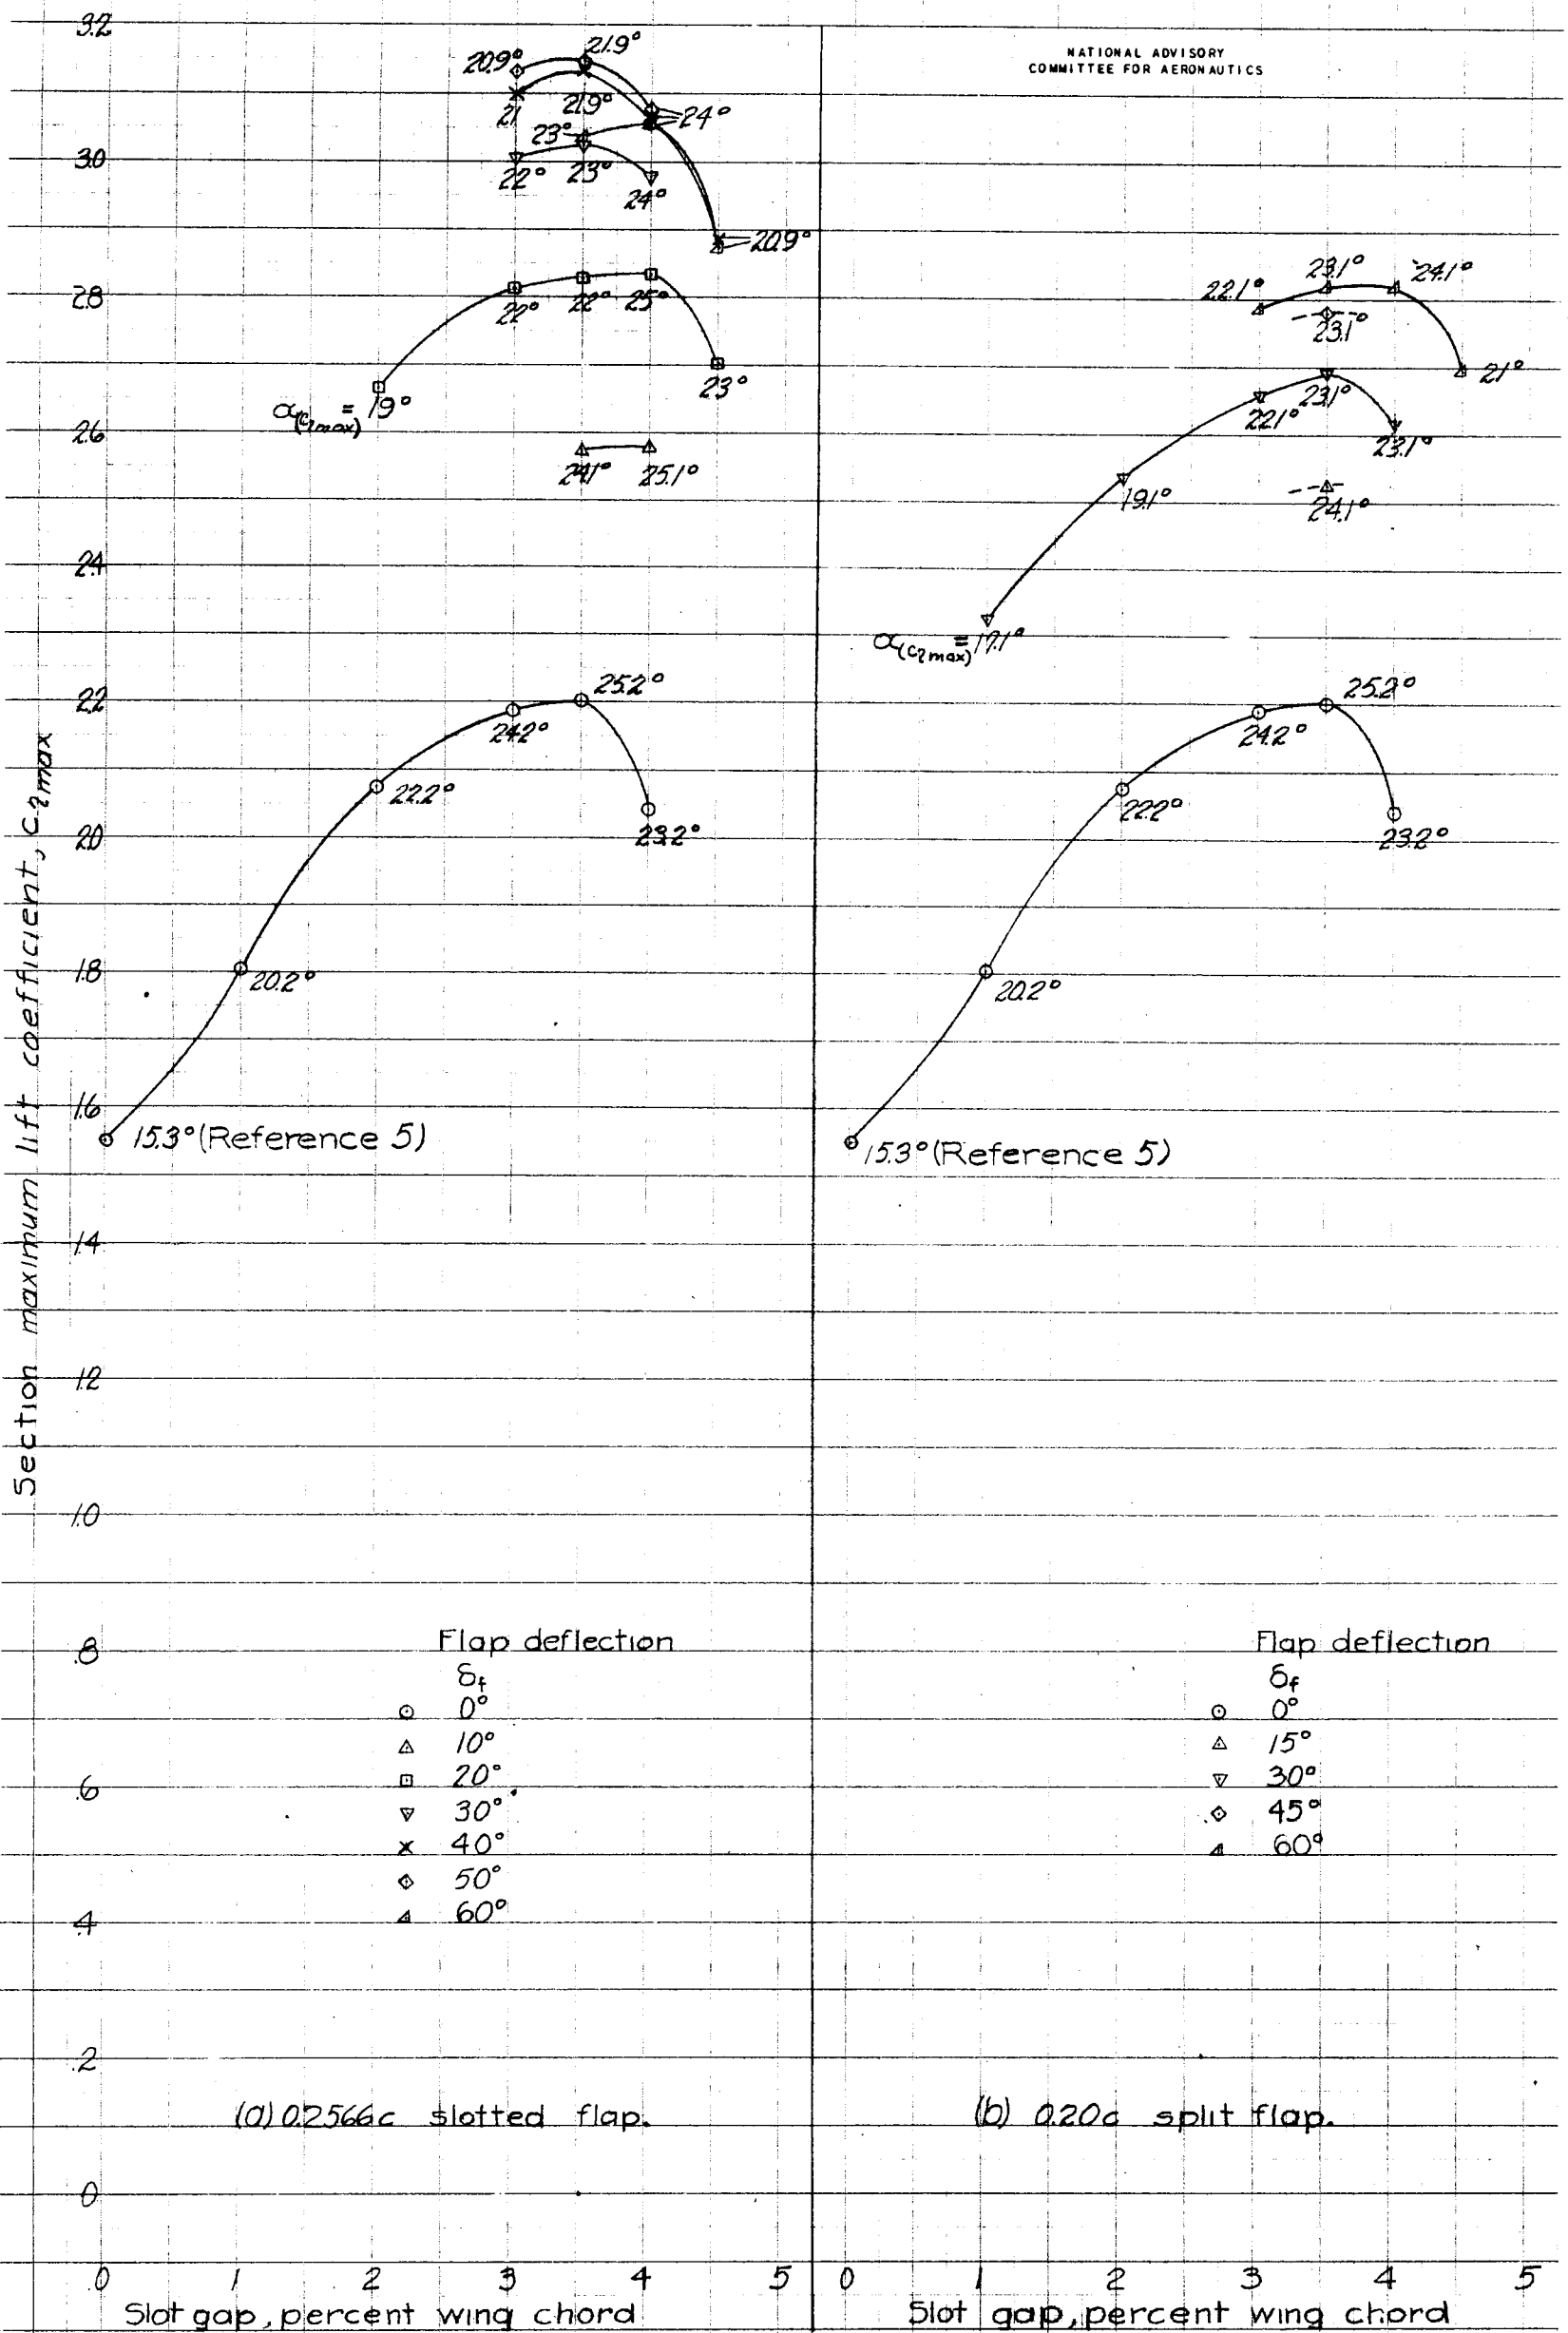 NATIONAL ADVISORY
COMMITTEE FOR AERONAUTICS
Section maximum lift coefficient, c_lmax
3.2
3.0
2.8
2.6
2.4
2.2
2.0
1.8
1.6
1.4
1.2
1.0
.8
.6
.4
.2
0
20.9°
21.9°
21
21.9°
23°
24°
22°
23°
24°
20.9°
22°
22°
25°
23°
α(c_lmax) = 19°
24.1°
25.1°
25.2°
24.2°
22.2°
23.2°
20.2°
15.3° (Reference 5)
Flap deflection
δf
0°
10°
20°
30°
40°
50°
60°
(a) 0.2566c slotted flap.
0 1 2 3 4 5
Slot gap, percent wing chord
22.1°
23.1°
24.1°
23.1°
21°
22.1°
23.1°
23.1°
19.1°
24.1°
α(c_lmax) = 17.1°
25.2°
24.2°
22.2°
23.2°
20.2°
15.3° (Reference 5)
Flap deflection
δf
0°
15°
30°
45°
60°
(b) 0.20c split flap.
0 1 2 3 4 5
Slot gap, percent wing chord